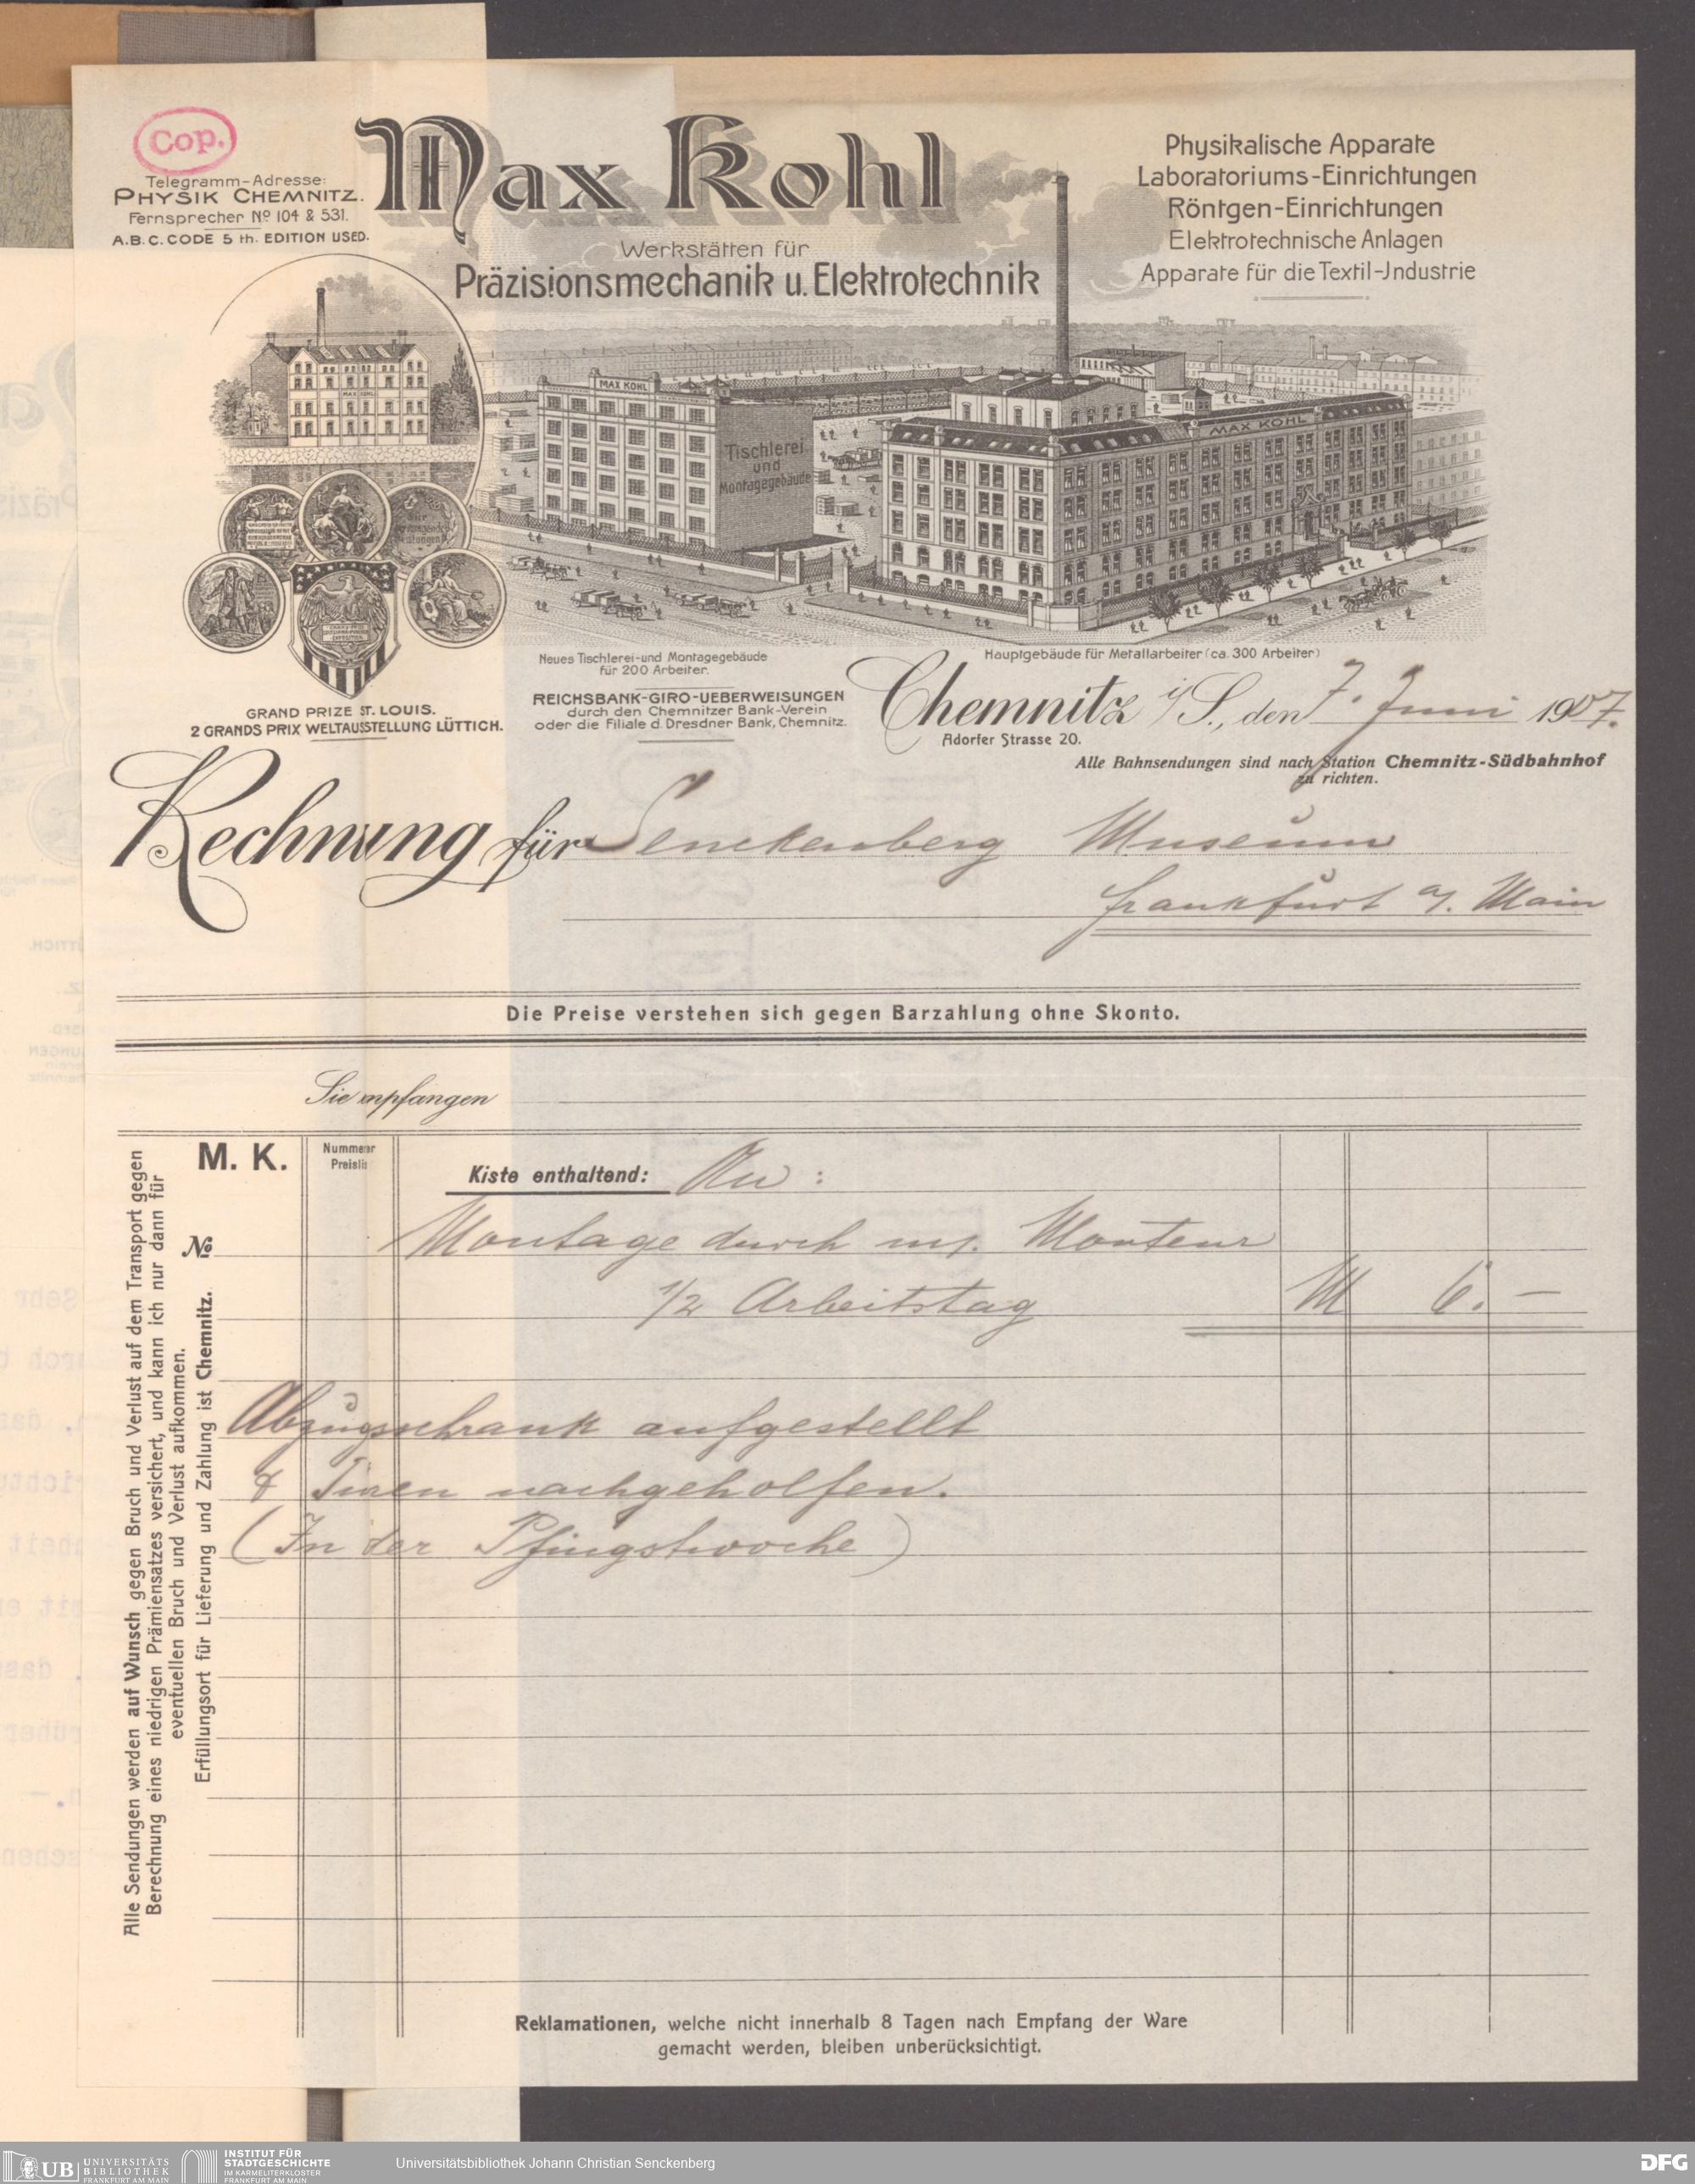 Cop.
Telegramm-Adresse:
PHYSIK CHEMNITZ.
Fernsprecher No 104 & 531.
A.B.C. CODE 5 th. EDITION USED.
Max Kohl
Werkstätten für
Präzisionsmechanik u. Elektrotechnik
Physikalische Apparate
Laboratoriums-Einrichtungen
Röntgen-Einrichtungen
Elektrotechnische Anlagen
Apparate für die Textil-Jndustrie
MAX KOHL
MAX KOHL
Tischlerei
und
Montagegebäude
MAX KOHL
Neues Tischlerei-und Montagegebäude
für 200 Arbeiter.
Hauptgebäude für Metallarbeiter (ca. 300 Arbeiter)
GRAND PRIZE ST. LOUIS.
2 GRANDS PRIX WELTAUSSTELLUNG LÜTTICH.
REICHSBANK-GIRO-UEBERWEISUNGEN
durch den Chemnitzer Bank-Verein
oder die Filiale d. Dresdner Bank, Chemnitz.
Chemnitz i/S., den 7. Juni 1907.
Adorfer Strasse 20.
Alle Bahnsendungen sind nach Station Chemnitz-Südbahnhof
zu richten.
Rechnung für Senckenberg Museum
Frankfurt a/. Main
Die Preise verstehen sich gegen Barzahlung ohne Skonto.
Sie empfangen
M. K.
Nummer
Preislis
Kiste enthaltend: An :
No
Montage durch m/. Monteur
1/2 Arbeitstag M 6. —
Abzugsschrank aufgestellt
& Türen nachgeholfen.
(In der Pfingstwoche)
Alle Sendungen werden auf Wunsch gegen Bruch und Verlust auf dem Transport gegen
Berechnung eines niedrigen Prämiensatzes versichert, und kann ich nur dann für
eventuellen Bruch und Verlust aufkommen.
Erfüllungsort für Lieferung und Zahlung ist Chemnitz.
Reklamationen, welche nicht innerhalb 8 Tagen nach Empfang der Ware
gemacht werden, bleiben unberücksichtigt.
UB UNIVERSITÄTS
BIBLIOTHEK
FRANKFURT AM MAIN
INSTITUT FÜR
STADTGESCHICHTE
IM KARMELITERKLOSTER
FRANKFURT AM MAIN
Universitätsbibliothek Johann Christian Senckenberg
DFG